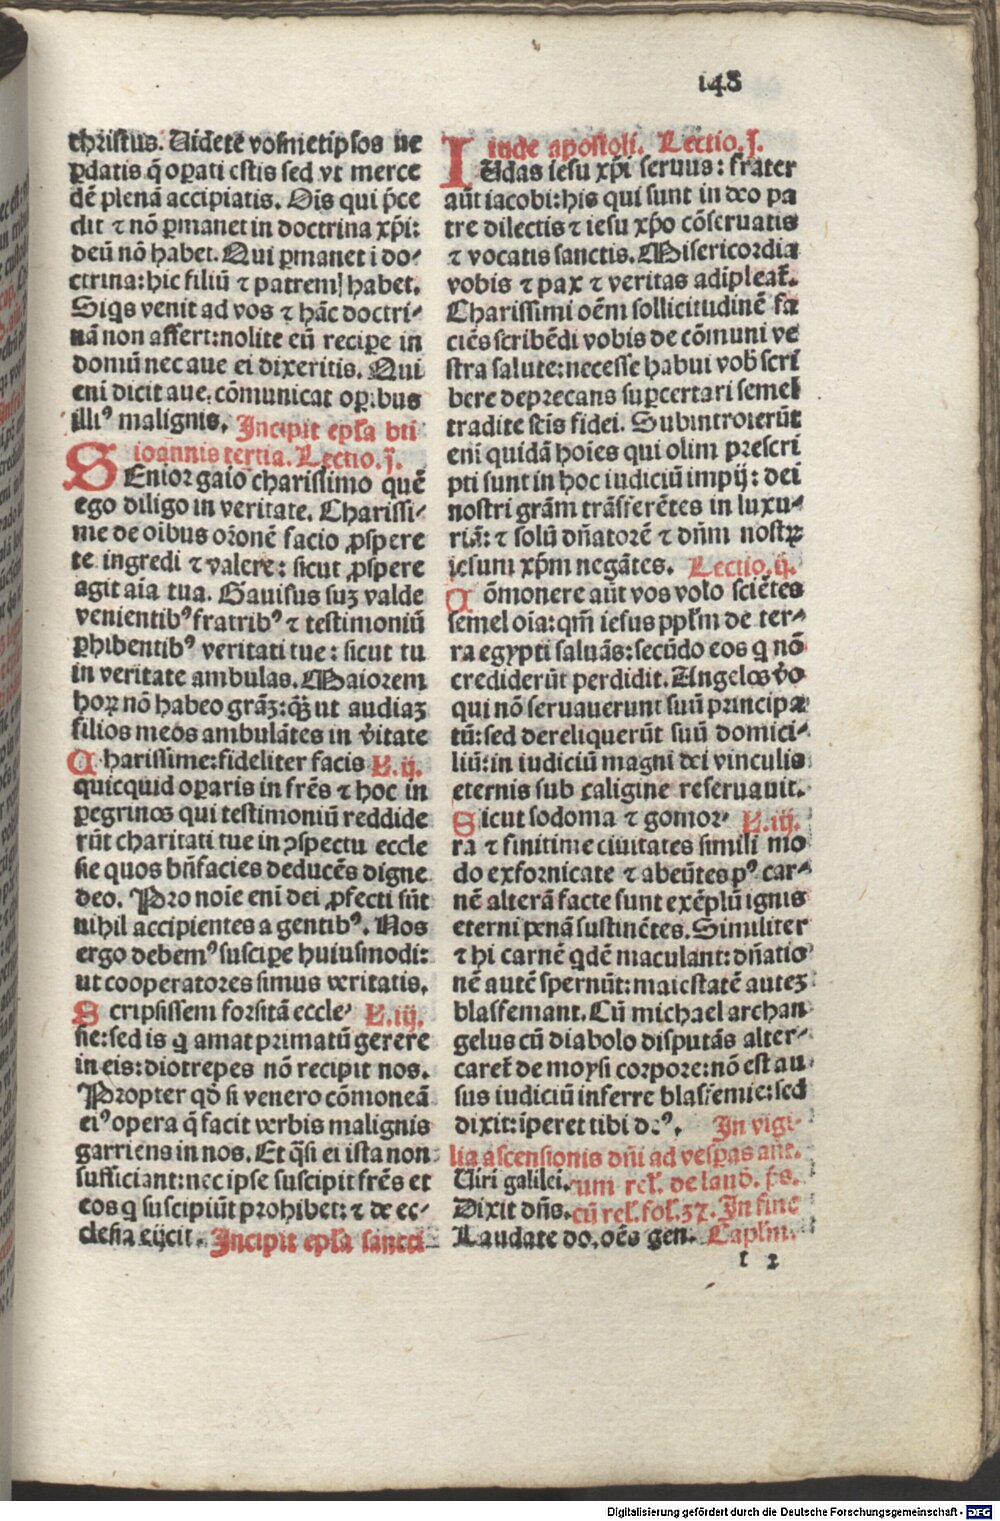 148
christus. Uidete vosmetipsos ne
ꝑdatis q̃ oꝑati estis sed vt merce
dẽ plenã accipiatis. Ois qui p̃ce
dit ⁊ nõ ꝑmanet in doctrina xp̃i:
deũ nõ habet. Qui ꝑmanet i do⸗
ctrina: hic filiũ ⁊ patrem habet.
Siqs venit ad vos ⁊ hãc doctri⸗
nã non affert: nolite eũ reciꝑe in
domũ nec aue ei dixeritis. Qui
eni dicit aue: cõmunicat oꝑibus
illiꝰ malignis. Incipit epl'a bti
ioannis tertia. Lectio. j.
SEnior gaio charissimo quẽ
ego diligo in veritate. Charissi⸗
me de oibus oronẽ facio ꝓspere
te ingredi ⁊ valere: sicut ꝓspere
agit aia tua. Gauisus suʒ valde
venientibꝰ fratribꝰ ⁊ testimoniũ
ꝑhibentibꝰ veritati tue: sicut tu
in veritate ambulas. Maiorem
hoꝝ nõ habeo grãʒ: q̃ʒ ut audiaʒ
filios meos ambulãtes in v̓itate
Charissime: fideliter facis L. ij.
quicquid oꝑaris in frẽs ⁊ hoc in
ꝑegrinos qui testimoniũ reddide
rũt charitati tue in ꝯspectu eccle
sie quos bñfacies deducẽs digne
deo. Pro noĩe eni dei ꝓfecti sũt
nihil accipientes a gentibꝰ. Nos
ergo debemꝰ susciꝑe huiusmodi:
ut cooperatores simus veritatis.
Scripsissem forsitã eccle⸗ L. iij.
sie: sed is q amat primatũ gerere
in eis: diotrepes nõ recipit nos.
Propter qd̓ si venero cõmoneã
eiꝰ opera q̃ facit verbis malignis
garriens in nos. Et q̃si ei ista non
sufficiant: nec ipse suscipit frẽs et
eos q suscipiũt prohibet: ⁊ de ec⸗
clesia eijcit. Incipit epl'a sancti
iude apostoli. Lectio. j.
IUdas iesu xp̃i seruus: frater
aũt iacobi: his qui sunt in deo pa
tre dilectis ⁊ iesu xp̃o cõseruatis
⁊ vocatis sanctis. Misericordia
vobis ⁊ pax ⁊ veritas adipleat̃.
Charissimi oẽm sollicitudinẽ fa
ciẽs scribẽdi vobis de cõmuni ve
stra salute: necesse habui vob̓ scri
bere deprecans suꝑcertari semel
tradite scĩs fidei. Subintroierũt
eni quidã hoĩes qui olim prescri
pti sunt in hoc iudiciũ impij: dei
nostri grãm trãsferẽtes in luxu⸗
riã: ⁊ solũ dñatorẽ ⁊ dñm nostꝝ
iesum xp̃m negãtes. Lectio. ij.
Cõmonere aũt vos volo sciẽtes
semel oĩa: qm̃ iesus ppl'm de ter⸗
ra egypti saluãs: secũdo eos q nõ
crediderũt perdidit. Angelos v̓o
qui nõ seruauerunt suũ principa
tũ: sed dereliquerũt suũ domici⸗
liũ: in iudiciũ magni dei vinculis
eternis sub caligine reseruauit.
Sicut sodoma ⁊ gomor⸗ L. iij.
ra ⁊ finitime ciuitates simili mo
do exfornicate ⁊ abeũtes pꝰ car⸗
nẽ alterã facte sunt exẽplũ ignis
eterni penã sustinẽtes. Similiter
⁊ hi carnẽ qdẽ maculant: dñatio
nẽ autẽ spernũt: maiestatẽ auteʒ
blasfemant. Cũ michael archan
gelus cũ diabolo disputãs alter⸗
caret̃ de moysi corpore: nõ est au⸗
sus iudiciũ inferre blasfemie: sed
dixit: iperet tibi deꝰ. In vigi⸗
lia ascensionis dñi ad vesꝑas añt.
Uiri galilei. cum rel'. de laud. ps.
Dixit dñs. cũ rel'. fol'. 37. In fine
Laudate do. oẽs gen. Capl'm.
t 2
Digitalisierung gefördert durch die Deutsche Forschungsgemeinschaft - DFG